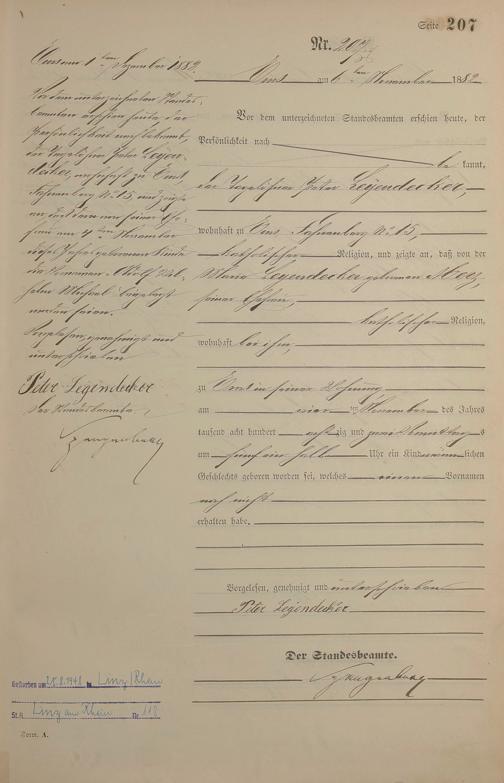 Seite 207
Nr. 207
Ems am 6ten November 1882
Vor dem unterzeichneten Standesbeamten erschien heute, der
Persönlichkeit nach
bekannt,
der Tagelöhner Peter Legendecker,
wohnhaft zu Ems No 15,
katholischer Religion, und zeigte an, daß von der
Maria Legendecker geborenen
seiner Ehefrau,
katholischer Religion,
wohnhaft bei ihm,
zu Ems in seiner Wohnung
am vier ten November des Jahres
tausend acht hundert achtzig und zwei
um Uhr ein Kind männlichen
Geschlechts geboren worden sei, welches einen Vornamen
noch nicht
erhalten habe.
Vorgelesen, genehmigt und unterschrieben
Peter Legendecker
Der Standesbeamte.
Ems am 1ten Dezember 1882.
Vor dem unterzeichneten Standes-
beamten erschien heute, der
Persönlichkeit nach bekannt,
der Tagelöhner Peter Legen-
decker, wohnhaft zu Ems,
No 15, und zeigte
an, daß dem von seiner Ehe-
frau am 4ten November
dieses Jahres geborenen Kinde
die Vornamen Adolf Wil-
helm Michael beigelegt
worden seien.
Vorgelesen, genehmigt und
unterschrieben
Peter Legendecker
Der Standesbeamte,
Gestorben am 25.8.1948 in Linz/Rhein
St.A. Linz am Rhein Nr. 118
Form. A.